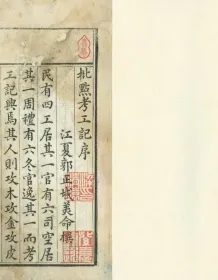 批點考工記序
江夏郭正域美命撰
民有四工居其一官有六司空居
其一周禮有六冬官逸其一而考
工記興焉其人則攻木攻金攻皮